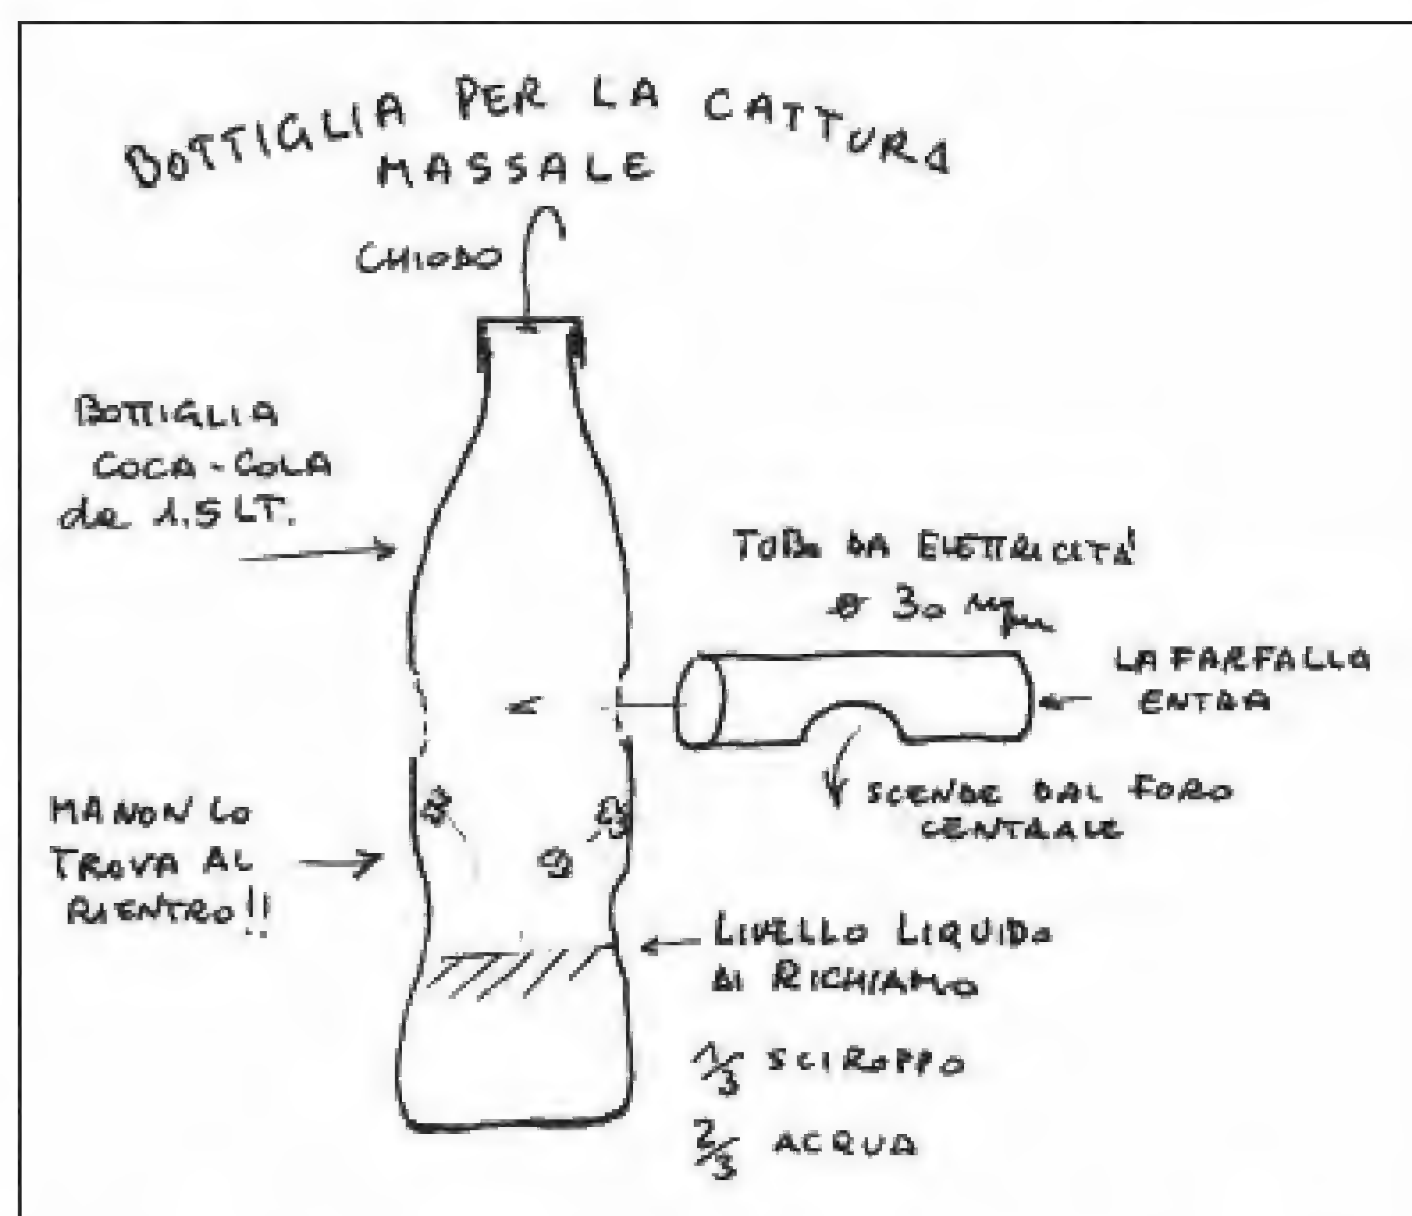 BOTTIGLIA PER LA CATTURA
MASSALE
CHIODO
BOTTIGLIA
COCA-COLA
da 1.5 LT.
TUBO DA ELETTRICITÀ
ø 30 mm
LA FARFALLA
ENTRA
SCENDE DAL FORO
CENTRALE
MA NON LO
TROVA AL
RIENTRO!!
LIVELLO LIQUIDO
DI RICHIAMO
1/3 SCIROPPO
2/3 ACQUA